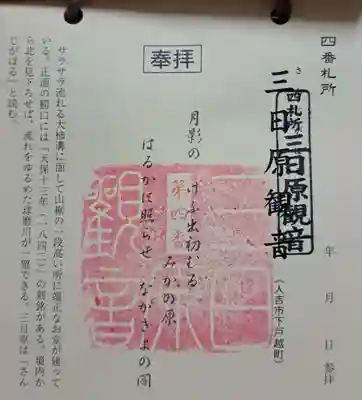 四番札所
三日原観音
さ
西札所三日原観音
(人吉市下戸越町)
年 月 日 参拝
奉拝
月影の けふ出初むる
みかの原
はるかに照らせ ながきよの闇
第四番
三日原観音
サラサラ流れる大柿溝に面して山麓の一段高い所に端正なお堂が建って
いる。正面の鰐口には「天保十三年(一八四二)」の刻銘がある。境内か
ら北を見下ろせば、流れをゆるめた球磨川が一望できる。三日原は「さん
じがはる」と読む。